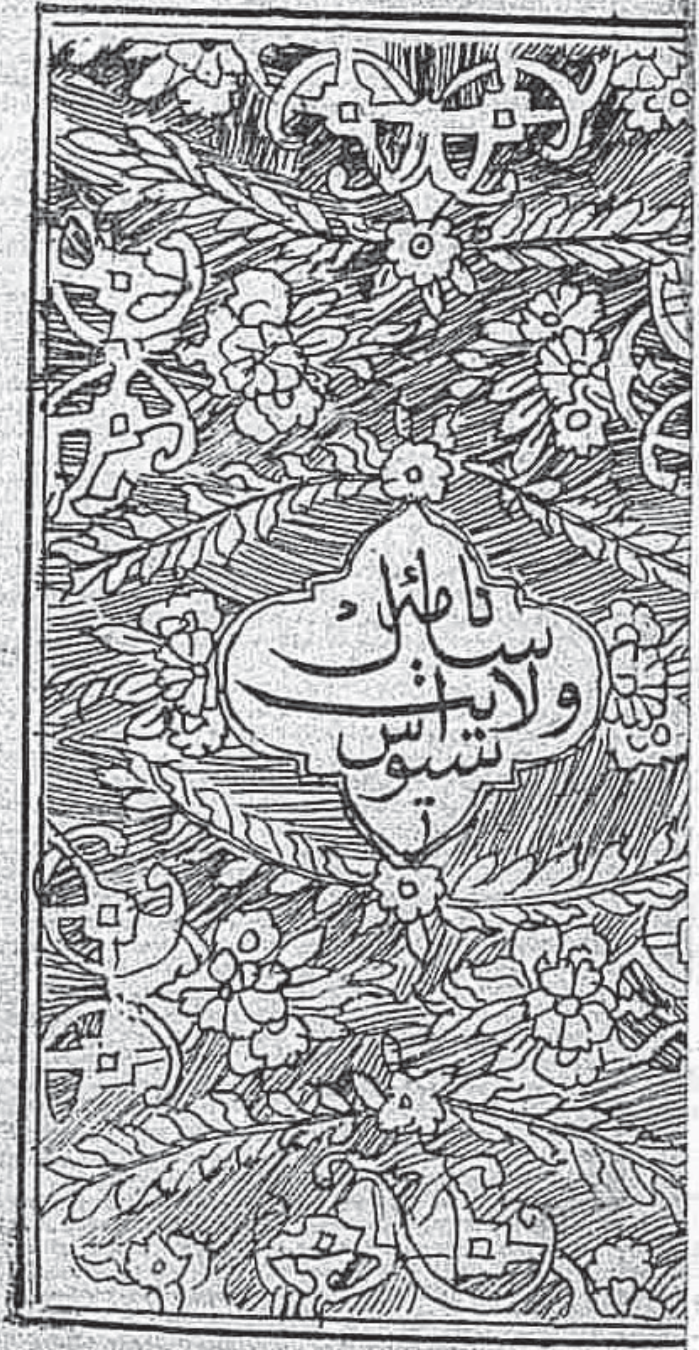 سالنامهٔ
ولايت
سيواس